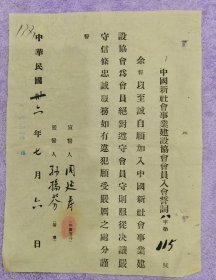 中國新社會事業建設協會會員入會誓詞 字第 115 號
余誓以至誠自願加入中國新社會事業建
設協會爲會員絕對遵守會員守則服從決議嚴
守信條忠誠服務如有違犯願受嚴厲之處分謹
誓
宣誓人 周廷彥
監誓人
中華民國卅六年七月六日